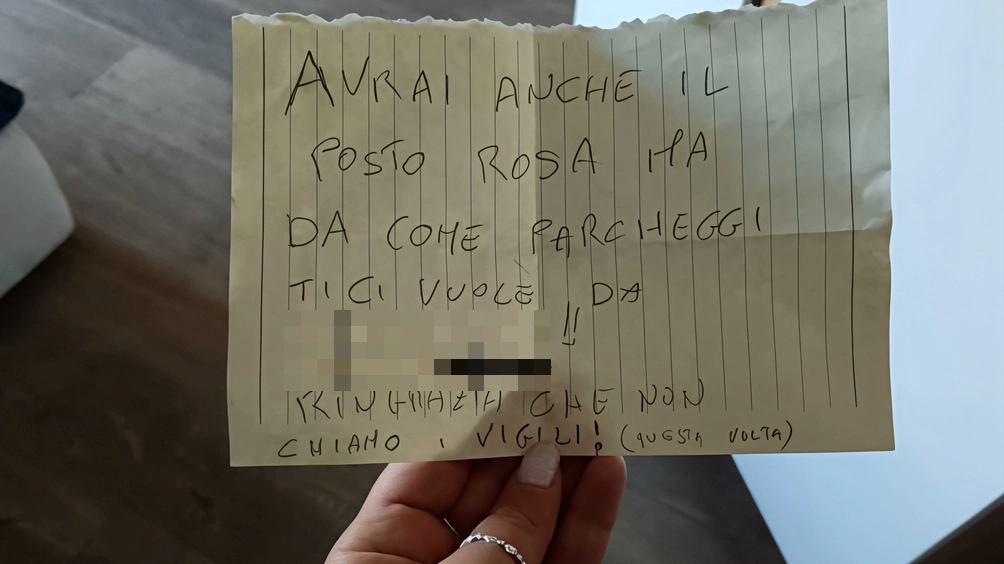 AVRAI ANCHE IL
POSTO ROSA MA
DA COME PARCHEGGI
TI CI VUOLE DA
!!
RINGRAZIA CHE NON
CHIAMO I VIGILI! (QUESTA VOLTA)